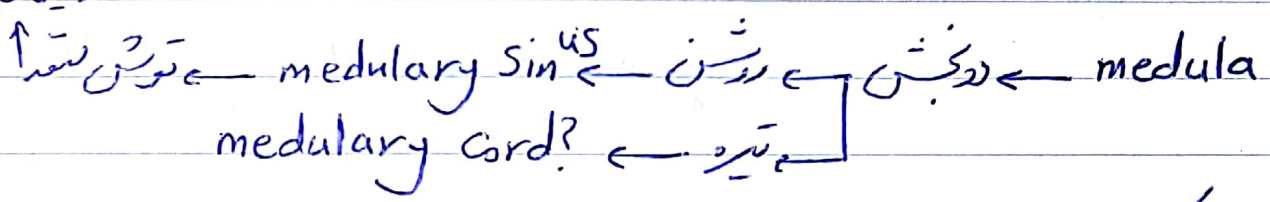 medula ← دوبخش ← روشن ← medulary sinus ← توش
تیره ← medulary cord?